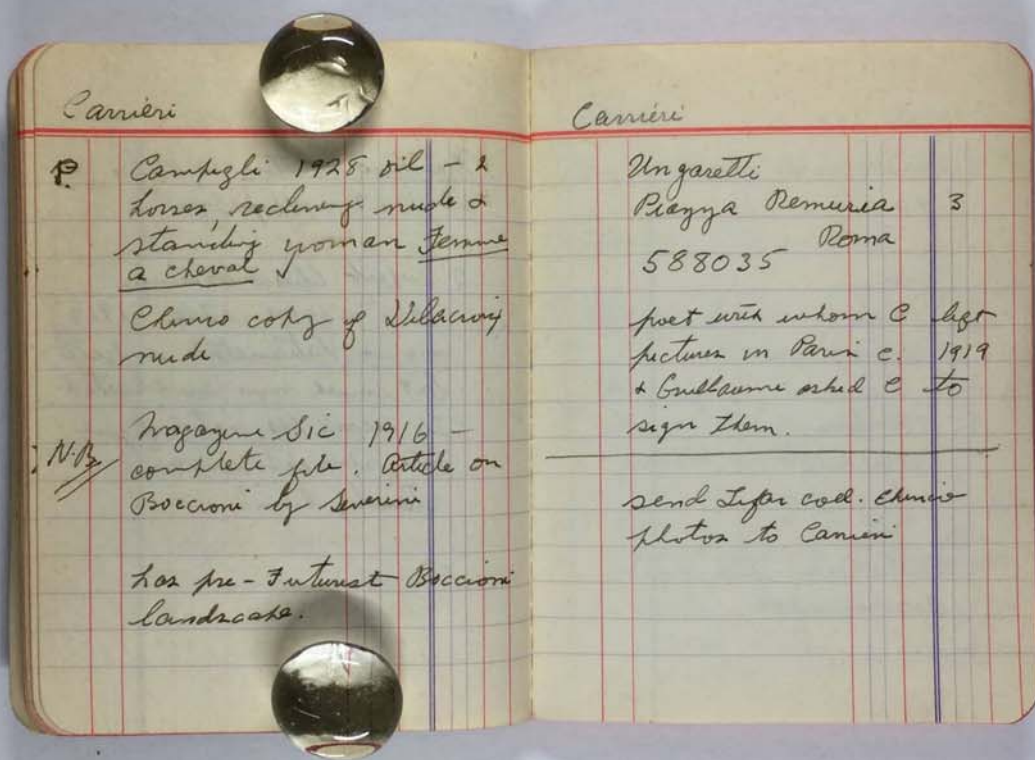 Carrieri
P. Campigli 1928 oil – 2
horses, reclining nude &
standing woman Femme
a cheval ✓
Chirico copy of Delacroix
nude
N.B. magazine Sic 1916 –
complete file. Article on
Boccioni by Severini
has pre-Futurist Boccioni
landscape.
Carrieri
Ungaretti
Piazza Remuria 3
Roma
588035
poet with whom C
pictures in Paris c. 1919
& Guillaume asked C to
sign them.
send Lifar coll. Chirico
photos to Carrieri